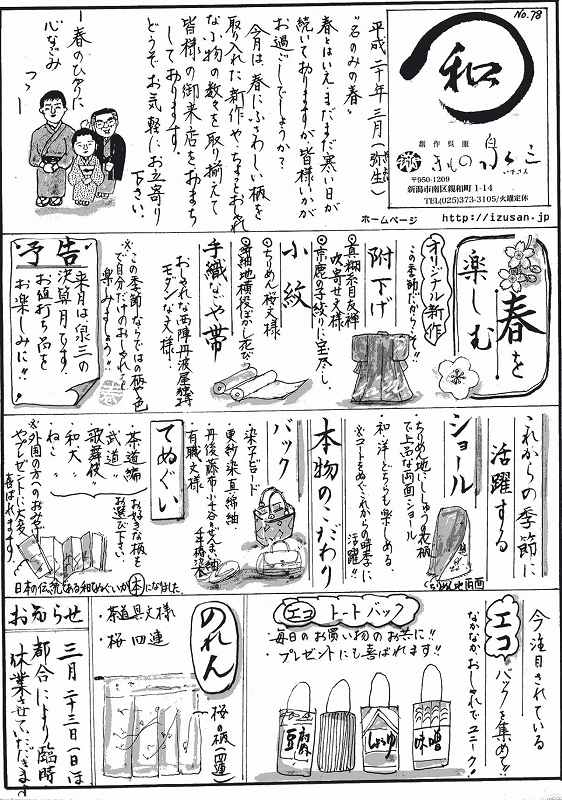 No.78
和
創作呉服
きもの泉三
いずさん
〒950-1209
新潟市南区親和町1-14
TEL(025)373-3105/火曜定休
ホームページ http://izusan.jp
平成二十年 三月（弥生）
"名のみの春"
春とはいえ、まだまだ寒い日が
続いておりますが皆様いかが
お過ごしでしょうか？
今月は、春にふさわしい柄を
取り入れた新作や、ちょっとおしゃれ
な小物の数々を取り揃えて
皆様の御来店をおまち
しております。
どうぞお気軽にお立寄り
下さい。
春のひかりに
心なごみ
つつ
春を
楽しむ
オリジナル新作
この季節だからこそ!!
附下げ
◎真糊糸目友禅
吹寄せ文様
◎京鹿の子絞りに宝尽し
小紋
◎ちりめん桜文様
手織なごや帯
おしゃれな西陣丹波屋独特
モダンな文様
※この季節ならではの柄や色
で自分だけのおしゃれを
楽しみましょう!!
予告
来月は泉三の
決算月です。
お値打ち品を
お楽しみに!!
これからの季節に
活躍する
ショール
・ちりめん地にししゅうの花柄
で上品な両面ショール
・和・洋どちらも楽しめる。
※コートをぬぐこれからの時季に
活躍!!
ちりめん地両面
本物のこだわり
バック
染めビロード
更紗染真綿紬
丹後藤布小千谷ぜんまい紬
有職文様
てぬぐい
・茶道編
・武道〃
・歌舞伎〃
・和犬〃
・ねこ〃
お好きな柄を
お選び下さい。
※外国の方へのお土産
やプレゼントに大変
喜ばれます。
日本の伝統である和てぬぐいが本になりました。
今注目されている
エコバックを集めて!!
なかなかおしゃれでユニーク!
エコ トートバック
・毎日のお買い物のお共に!!
・プレゼントにも喜ばれます!!
豆腐
しょうゆ
味噌
のれん
・茶道具文様
・桜四連
桜の柄(四連)
お知らせ
三月二十三日(日)は
都合により臨時
休業させていただきます